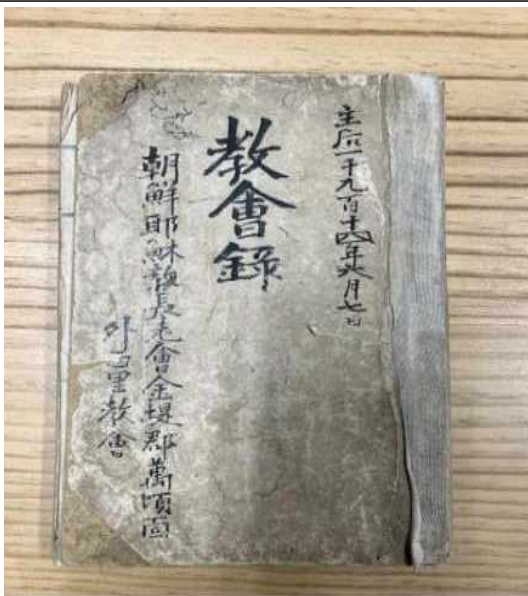 主后一千九百十四年六月七日
教會錄
朝鮮耶穌敎長老會金堤郡萬頃面
外里敎會